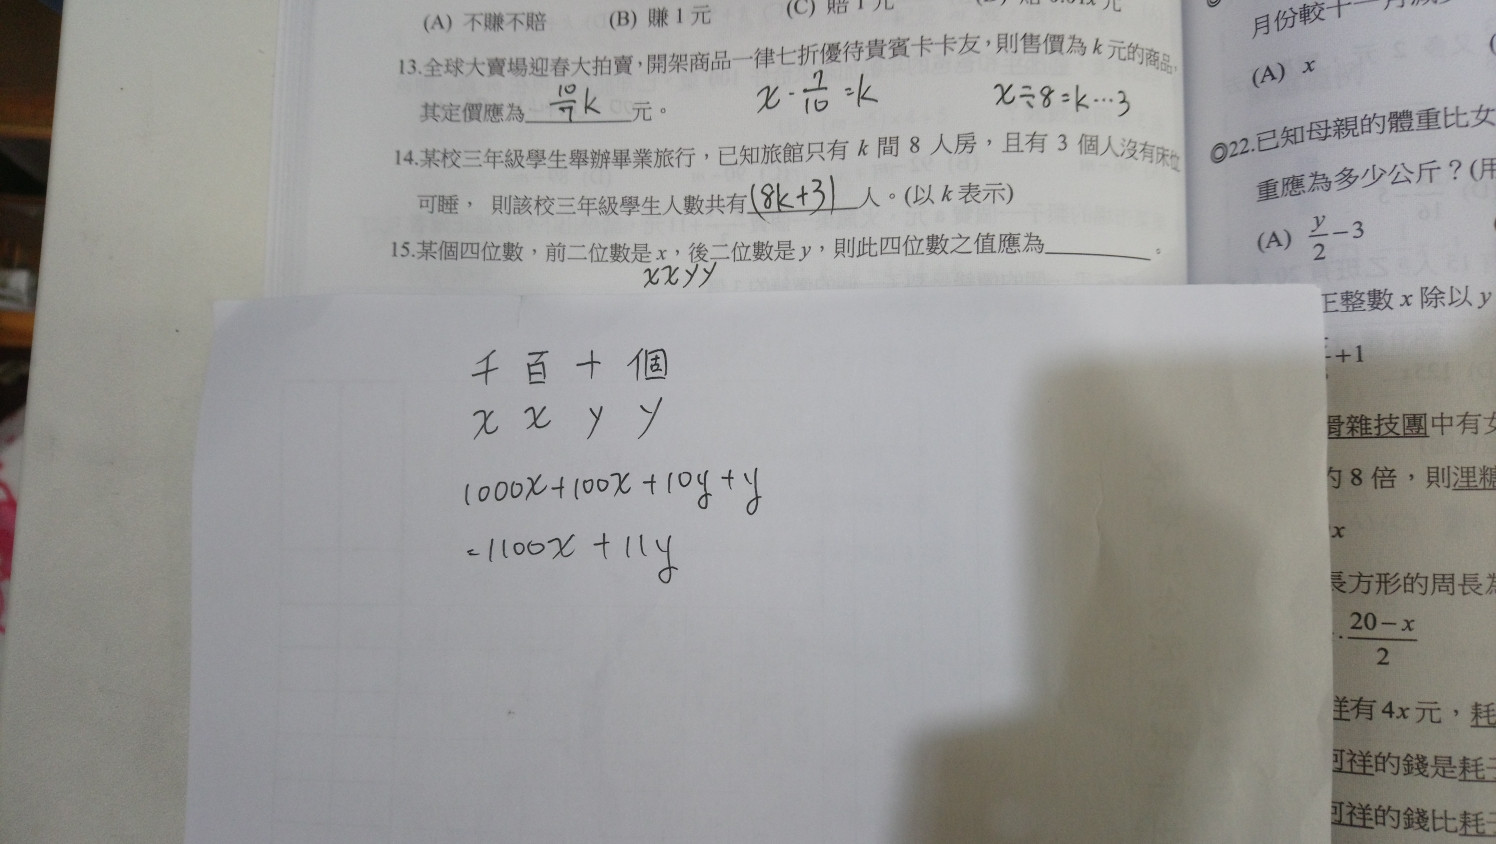 (A) 不賺不賠 (B) 賺 1 元 (C) 賠 1 元
13.全球大賣場迎春大拍賣，開架商品一律七折優待貴賓卡卡友，則售價為 k 元的商品，
其定價應為 10/7 k 元。 x · 7/10 = k x÷8=k…3
14.某校三年級學生舉辦畢業旅行，已知旅館只有 k 間 8 人房，且有 3 個人沒有床位
可睡， 則該校三年級學生人數共有(8k+3)人。(以 k 表示)
15.某個四位數，前二位數是 x，後二位數是 y，則此四位數之值應為________。
xxyy
千 百 十 個
x x y y
1000x+100x+10y+y
=1100x+11y
(A) x
◎22.已知母親的體重比女
重應為多少公斤？(用
(A) y/2 －3
正整數 x 除以 y
+1
滑雜技團中有女
的 8 倍，則浬糖
x
長方形的周長為
· 20－x/2
祥有 4x 元，耗
阿祥的錢是耗子
阿祥的錢比耗子